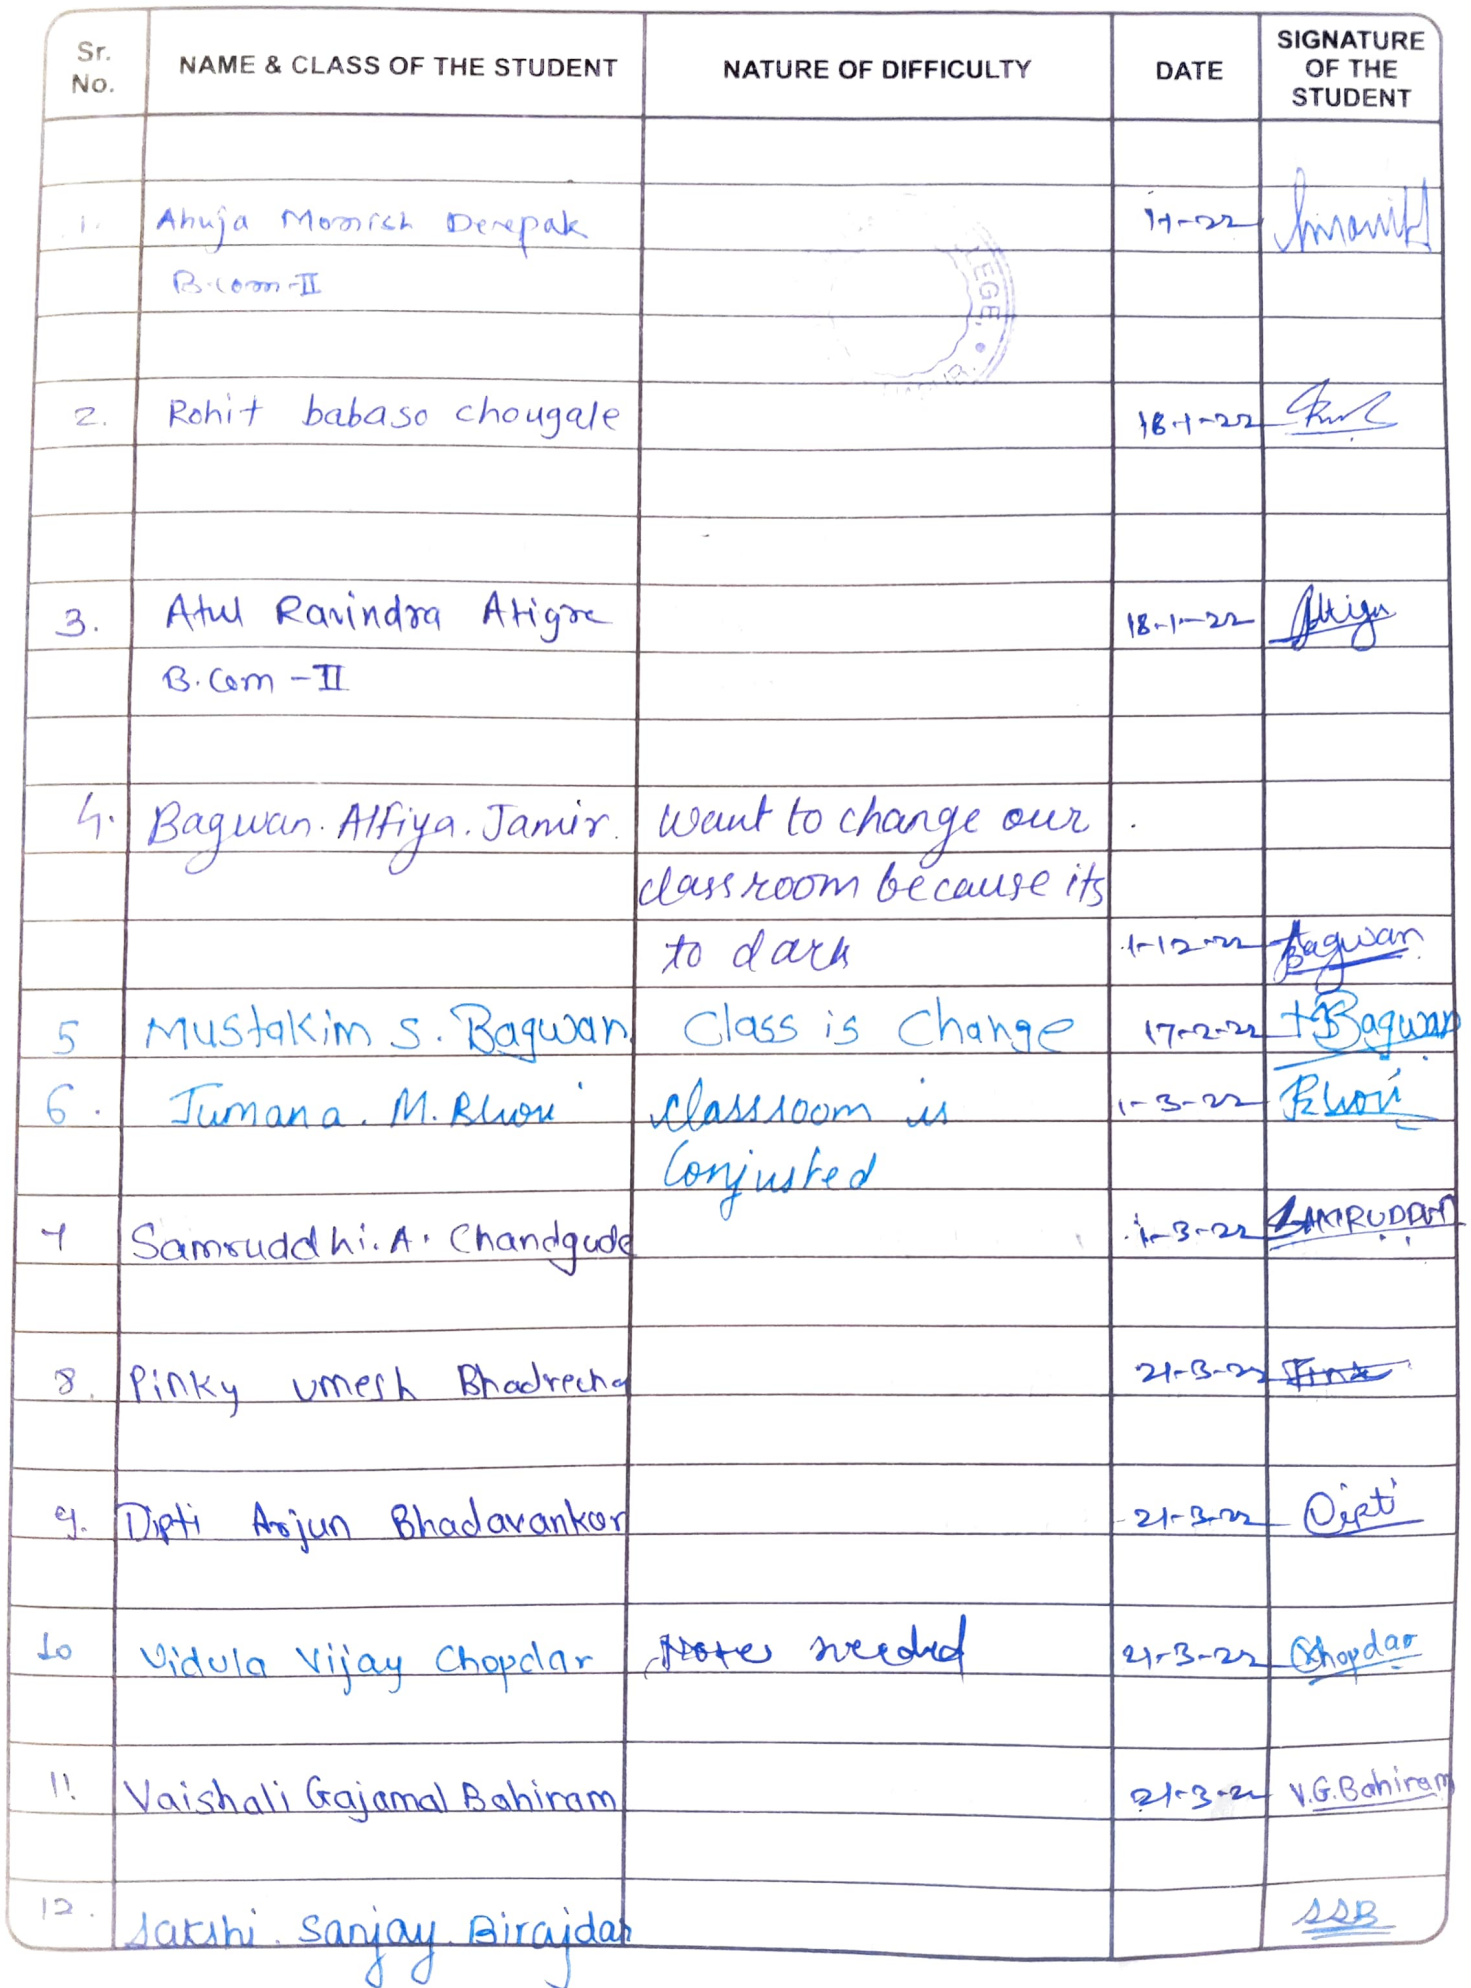 Sr. No. NAME & CLASS OF THE STUDENT NATURE OF DIFFICULTY DATE SIGNATURE OF THE STUDENT
1. Ahuja Monish Deepak
B.com-II
EGE,
2. Rohit babaso chougale 18-1-22
3. Atul Ravindra Atigre 18-1-22 Atigre
B.Com-II
4. Bagwan. Alfiya. Jamir. Want to change our
classroom because its
to dark 1-12-22 Bagwan
5 Mustakim S. Bagwan Class is Change 17-2-22 Bagwan
6. Jumana. M. Bhori classroom is 1-3-22 Bhori
Conjusted
7 Samruddhi. A. Chandgude 1-3-22
8. Pinky Umesh Bhadrecha 21-3-22
9. Dipti Arjun Bhadavankar 21-3-22 Dipti
10 Vidula Vijay Chopdar Notes needed 21-3-22 Chopdar
11. Vaishali Gajamal Bahiram 21-3-22 V.G.Bahiram
12. Sakshi. Sanjay. Birajdar SSB